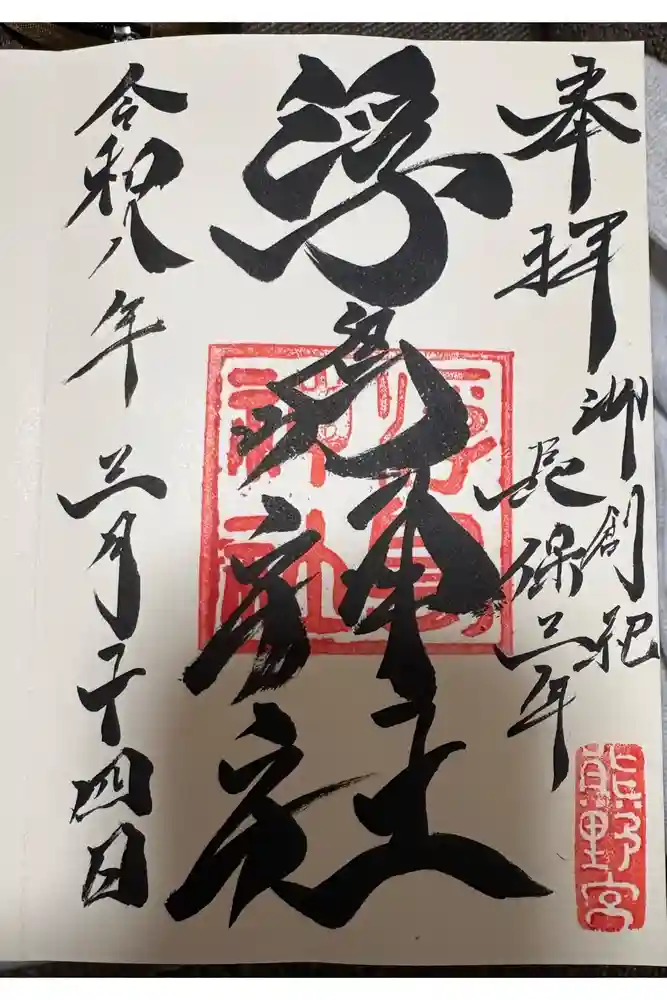 奉拝
御創祀
長保三年
浮島神社
令和八年三月二十四日
浮島神社
熊野宮